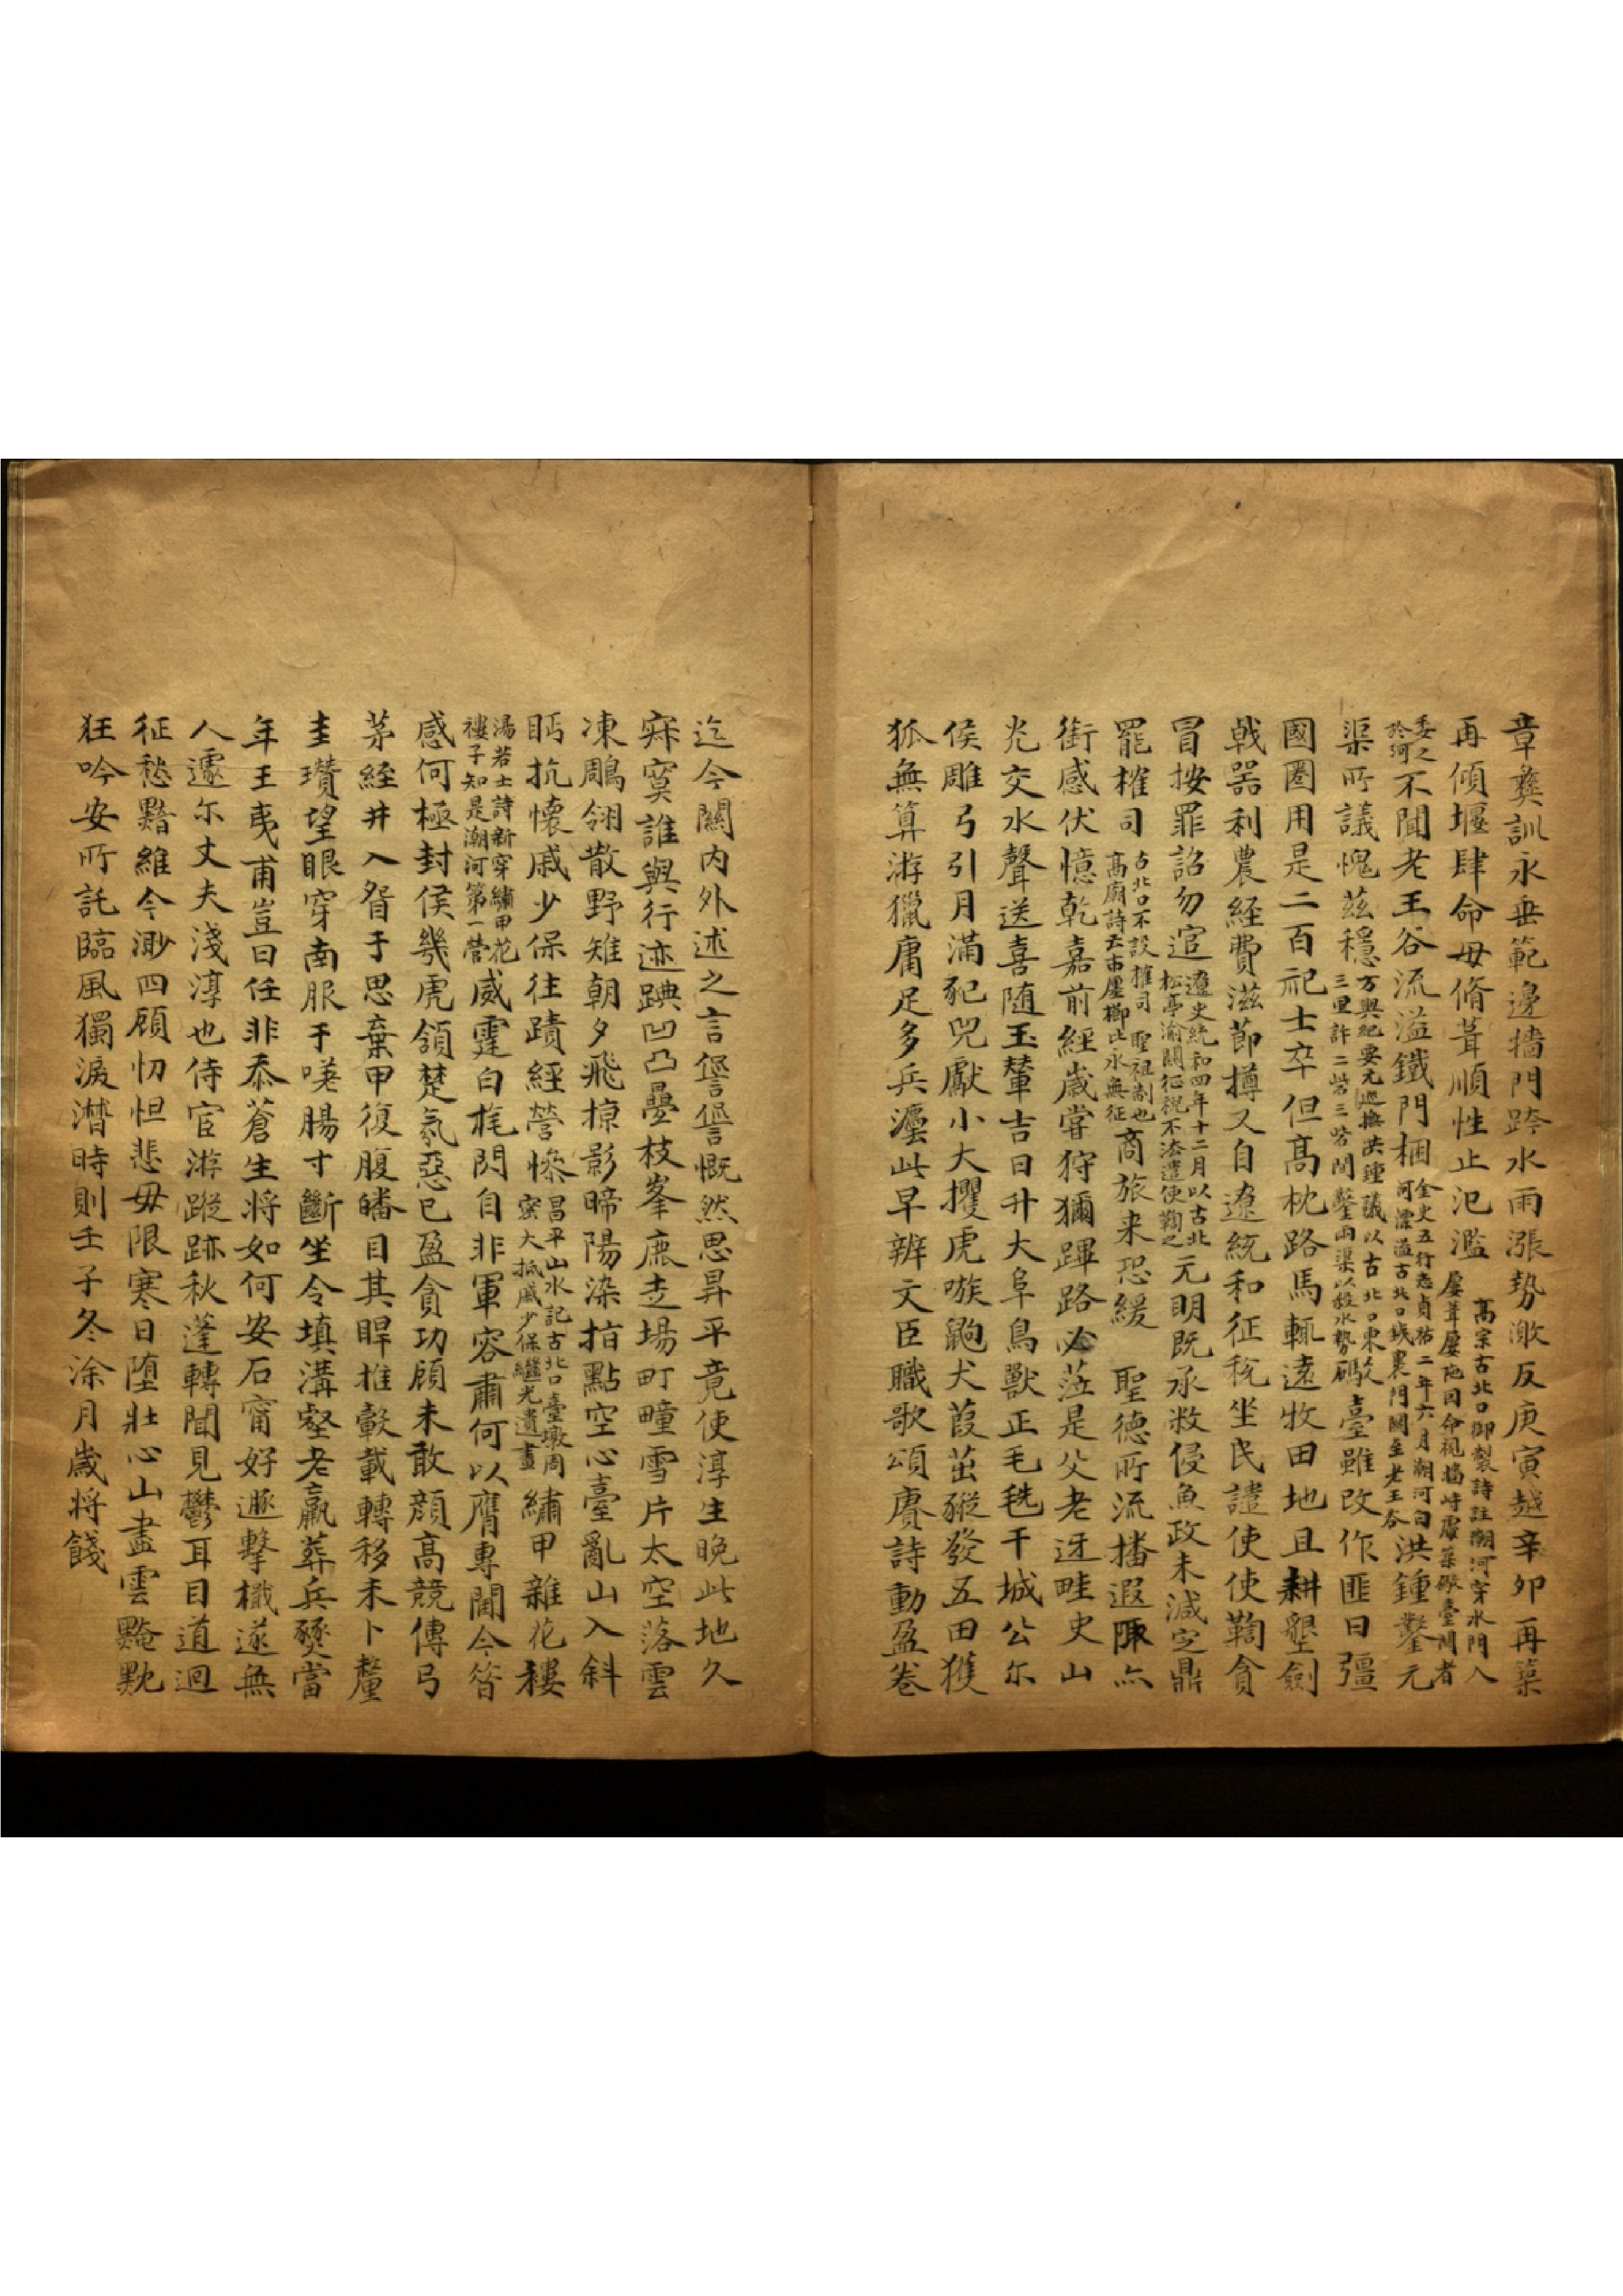 章彝訓永垂範邊牆門跨水雨漲勢激反庚寅越辛卯再築
再傾堰肆命毋脩葺順性止氾濫
高宗古北口御製詩註潮河穿水門入
屢葺屢圮因命視擣峙廢築礮臺門者
委之
於河
不聞老王谷流溢鐵門梱
金史五行志貞祐二年六月潮河白
河漂溢古北口鐵裹門關至老王谷
洪鍾鑿元
渠所議愧茲穩
方輿紀要元巡撫洪鍾議以古北口東
三里許二岩三岩間鑿兩渠以殺水勢
礮臺雖改作匪曰彊
國圉用是二百祀士卒但高枕路馬輒遠牧田地且耕墾劍
戟器利農経費滋節撙又自遼統和征税坐民譴使使鞫貪
冒按罪詔勿逭
遼史統和四年十二月以古北
松亭渝關征稅不法遣使鞫之
元明既承敝侵魚政未減定鼎
罷榷司
古北口不設榷司 聖祖制也
高廟詩云市廛櫛比永無征
商旅来恐緩 聖德所流播遐陬亦
銜感伏憶乾嘉前經歲甞狩獮蹕路必蒞是父老迓畦史山
光交水聲送喜随玉輦吉日升大阜鳥獸正毛毨干城公尔
侯雕弓引月滿豝兕獻小大攫虎嗾鼩犬葭茁豵發五田獲
狐無算游獵庸足多兵灋此早辨文臣職歌頌賡詩動盈卷
迄今關内外述之言亹亹慨然思昇平竟使淳生晚此地久
寂寞誰與行迹踐凹凸疊枝峯鹿走場町畽雪片太空落雲
凍鵰翎散野雉朝夕飛掠影晞陽染指點空心臺亂山入斜
眄抗懷戚少保往蹟經營慘
昌平山水記古北口臺墩周
密大抵戚少保繼光遺畫
繡甲雜花穠
湯若士詩新穿繡甲花
樓子知是潮河第一營
威霆白旄閃自非軍容肅何以膺專閫今笴
感何極封侯幾虎頷楚氛惡已盈貪功顧未敢顔高競傳弓
茅絰井入眢于思棄甲復腹皤目其睅推轂載轉移未卜釐
圭瓚望眼穿南服于嘆腸寸斷坐令填溝壑老羸葬兵燹當
年王夷甫豈曰任非忝蒼生将如何安石甯好遯擊檝遂無
人遽尔丈夫淺淳也侍宦游蹤跡秋蓬轉聞見鬱耳目道迴
征愁黯維今渺四顧忉怛悲毋限寒日墮壯心山盡雲黤黕
狂吟安所託臨風獨淚潸時則壬子冬涂月歲将餞